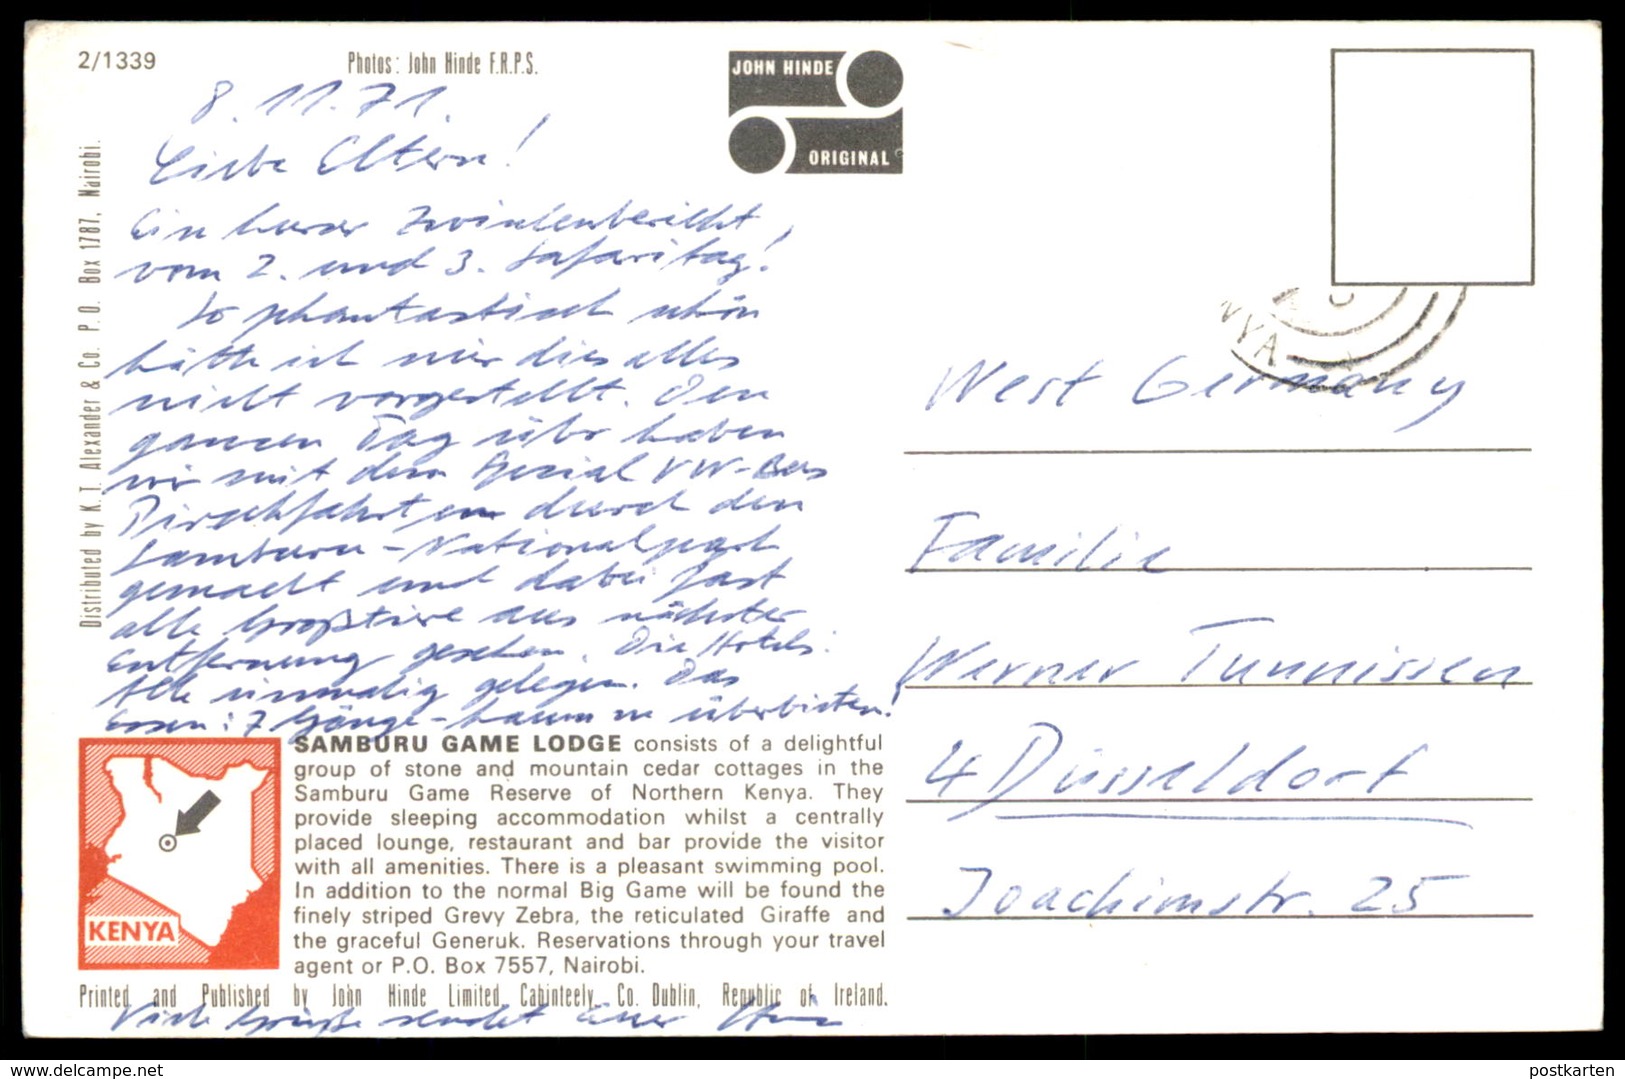 2/1339
Photos: John Hinde F.R.P.S.
JOHN HINDE
ORIGINAL
8.11.71.
Liebe Eltern!
Ein kurzer Zwischenbericht
vom 2. und 3. Safaritag!
So phantastisch schön
hätte ich mir dies alles
nicht vorgestellt. Den
ganzen Tag über haben
wir mit dem Spezial VW-Bus
Pirschfahrten durch den
Samburu-Nationalpark
gemacht und dabei fast
alle Großtiere aus nächster
Entfernung gesehen. Die Hotels:
Alle einmalig gelegen. Das
Essen: 7 Gänge - kaum zu überbieten!
Distributed by K. T. Alexander & Co. P. O. Box 1787, Nairobi.
NYA
West Germany
Familie
Werner Tunnissen
4 Düsseldorf
Joachimstr. 25
KENYA
SAMBURU GAME LODGE consists of a delightful
group of stone and mountain cedar cottages in the
Samburu Game Reserve of Northern Kenya. They
provide sleeping accommodation whilst a centrally
placed lounge, restaurant and bar provide the visitor
with all amenities. There is a pleasant swimming pool.
In addition to the normal Big Game will be found the
finely striped Grevy Zebra, the reticulated Giraffe and
the graceful Generuk. Reservations through your travel
agent or P.O. Box 7557, Nairobi.
Printed and Published by John Hinde Limited, Cabinteely, Co. Dublin, Republic of Ireland.
Viele Grüße sendet Euer
the-best-of-philately.com
postkarten